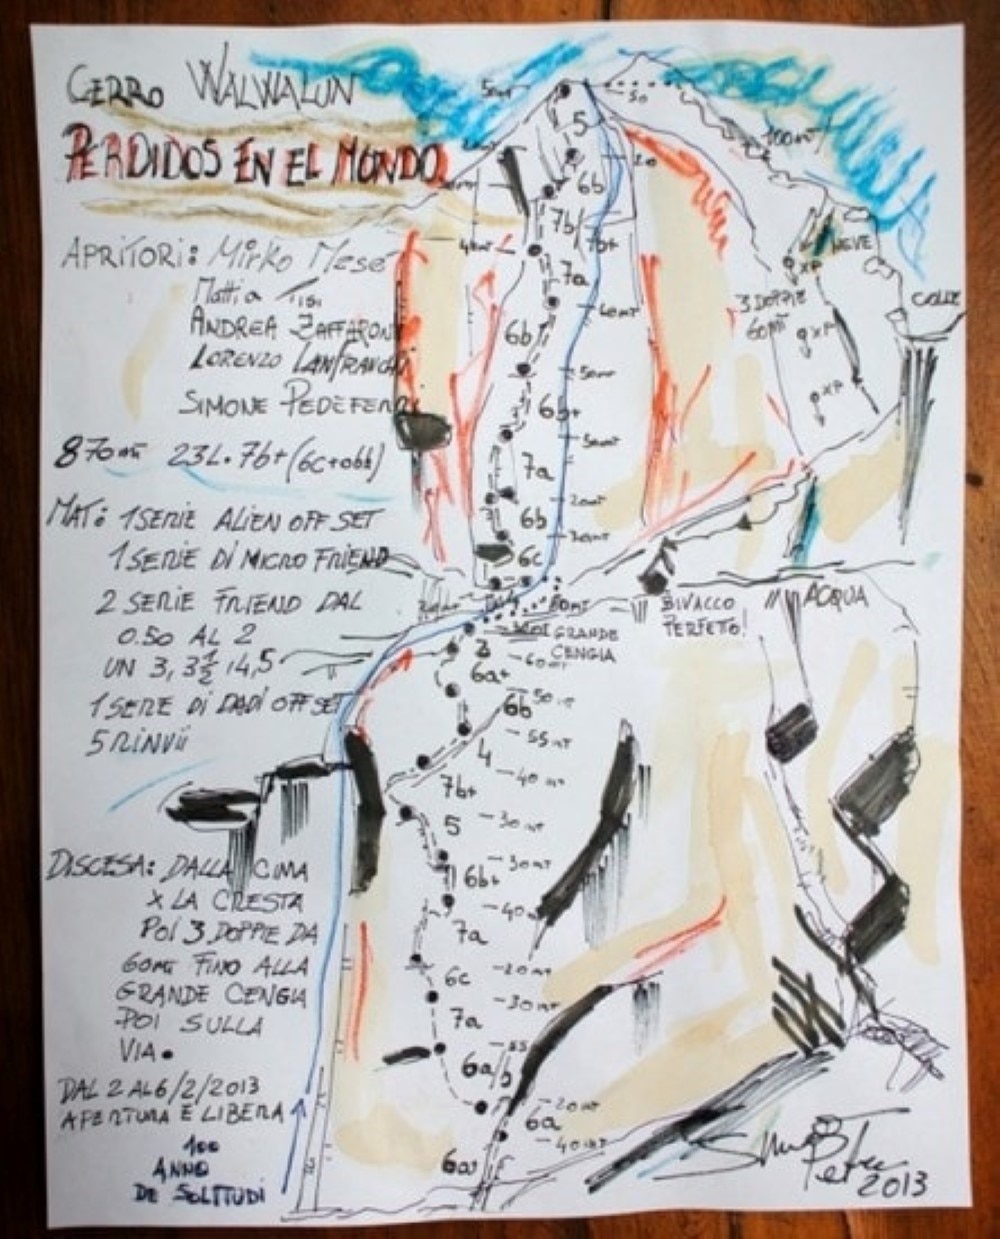 CERRO WALWALUN
PERDIDOS EN EL MONDO
APRITORI: Mirko Mesé
Mattia
ANDREA ZAFFARONI
LORENZO LANFRANCHI
SIMONE PEDEFERRI
870mt 23L. 7b+ (6c+obb)
MAT: 1 SERIE ALIEN OFF SET
1 SERIE DI MICRO FRIEND
2 SERIE FRIEND DAL
0.50 AL 2
UN 3, 3½, 4, 5
1 SERIE DI DADI OFF SET
5 RINVII
DISCESA: DALLA CIMA
X LA CRESTA
POI 3 DOPPIE DA
60mt FINO ALLA
GRANDE CENGIA
POI SULLA
VIA.
DAL 2 AL 6/2/2013
APERTURA E LIBERA
100
ANNO
DE SOLITUDI
50
5
20
100mt
6b
7b/7b+
40mt
7a
NEVE
XP
COLLE
3 DOPPIE
60mt
XP
XP
40mt
6b
50mt
6b+
50mt
7a
20mt
6b
30mt
6c
60mt
BIVACCO
PERFETO!
ACQUA
GRANDE
CENGIA
2
60mt
6a+
6b
50mt
55mt
4
40mt
7b+
30mt
5
30mt
6b+
40mt
7a
20mt
6c
30mt
7a
55
6a/b
20mt
6a
40mt
6a
2013